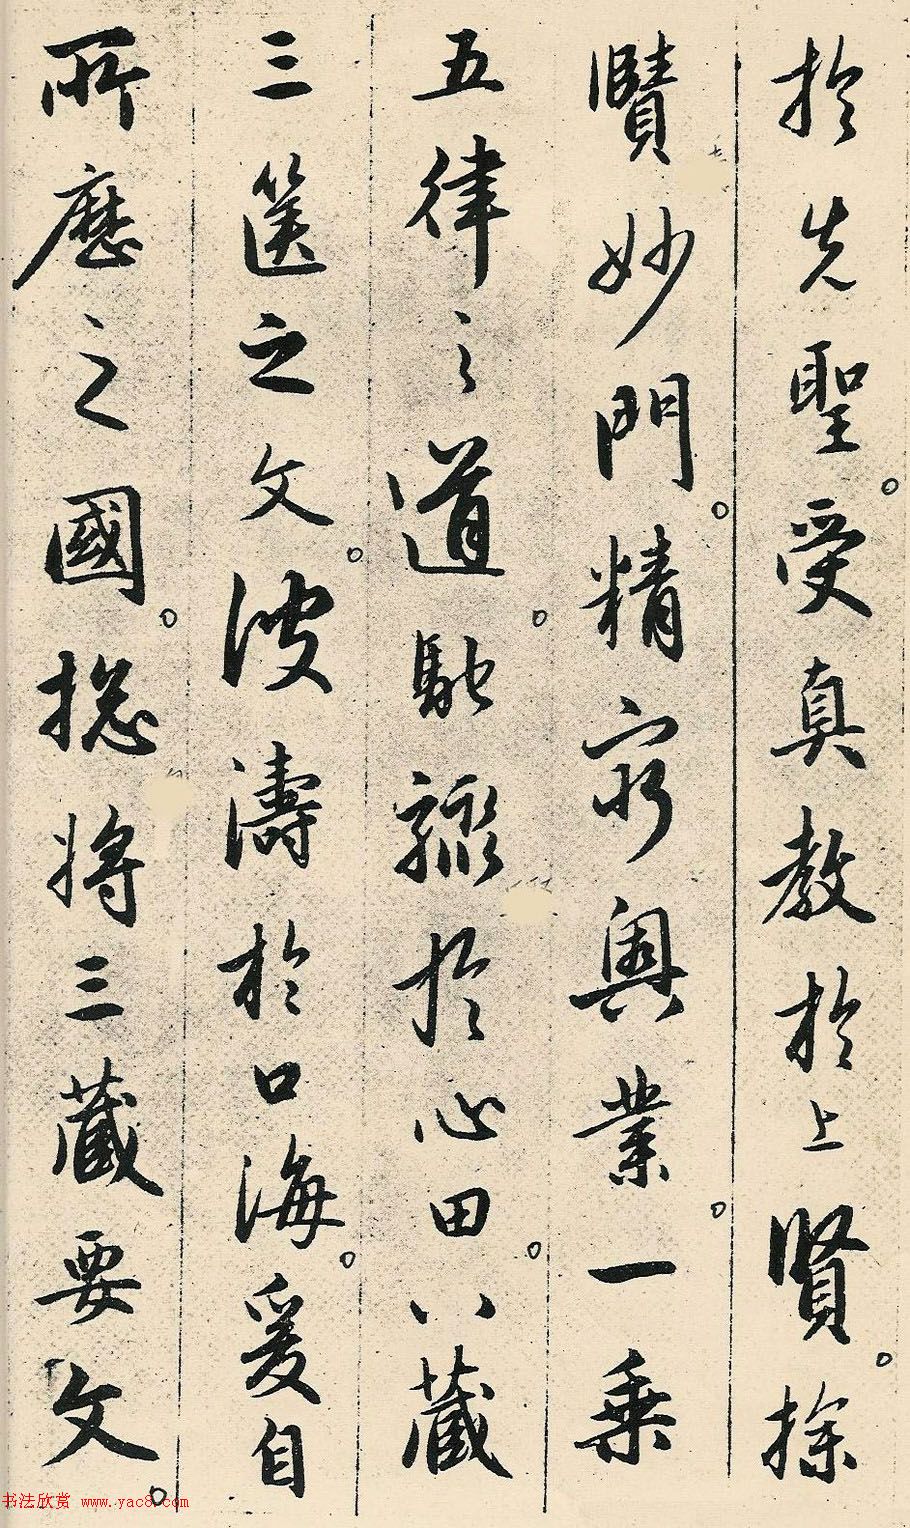 於先聖。受真教於上賢。探
賾妙門。精窮奧業。一乘
五律之道。馳驟於心田。八藏
三篋之文。波濤於口海。爰自
所歷之國。摠將三藏要文。
书法欣赏 www.yac8.com